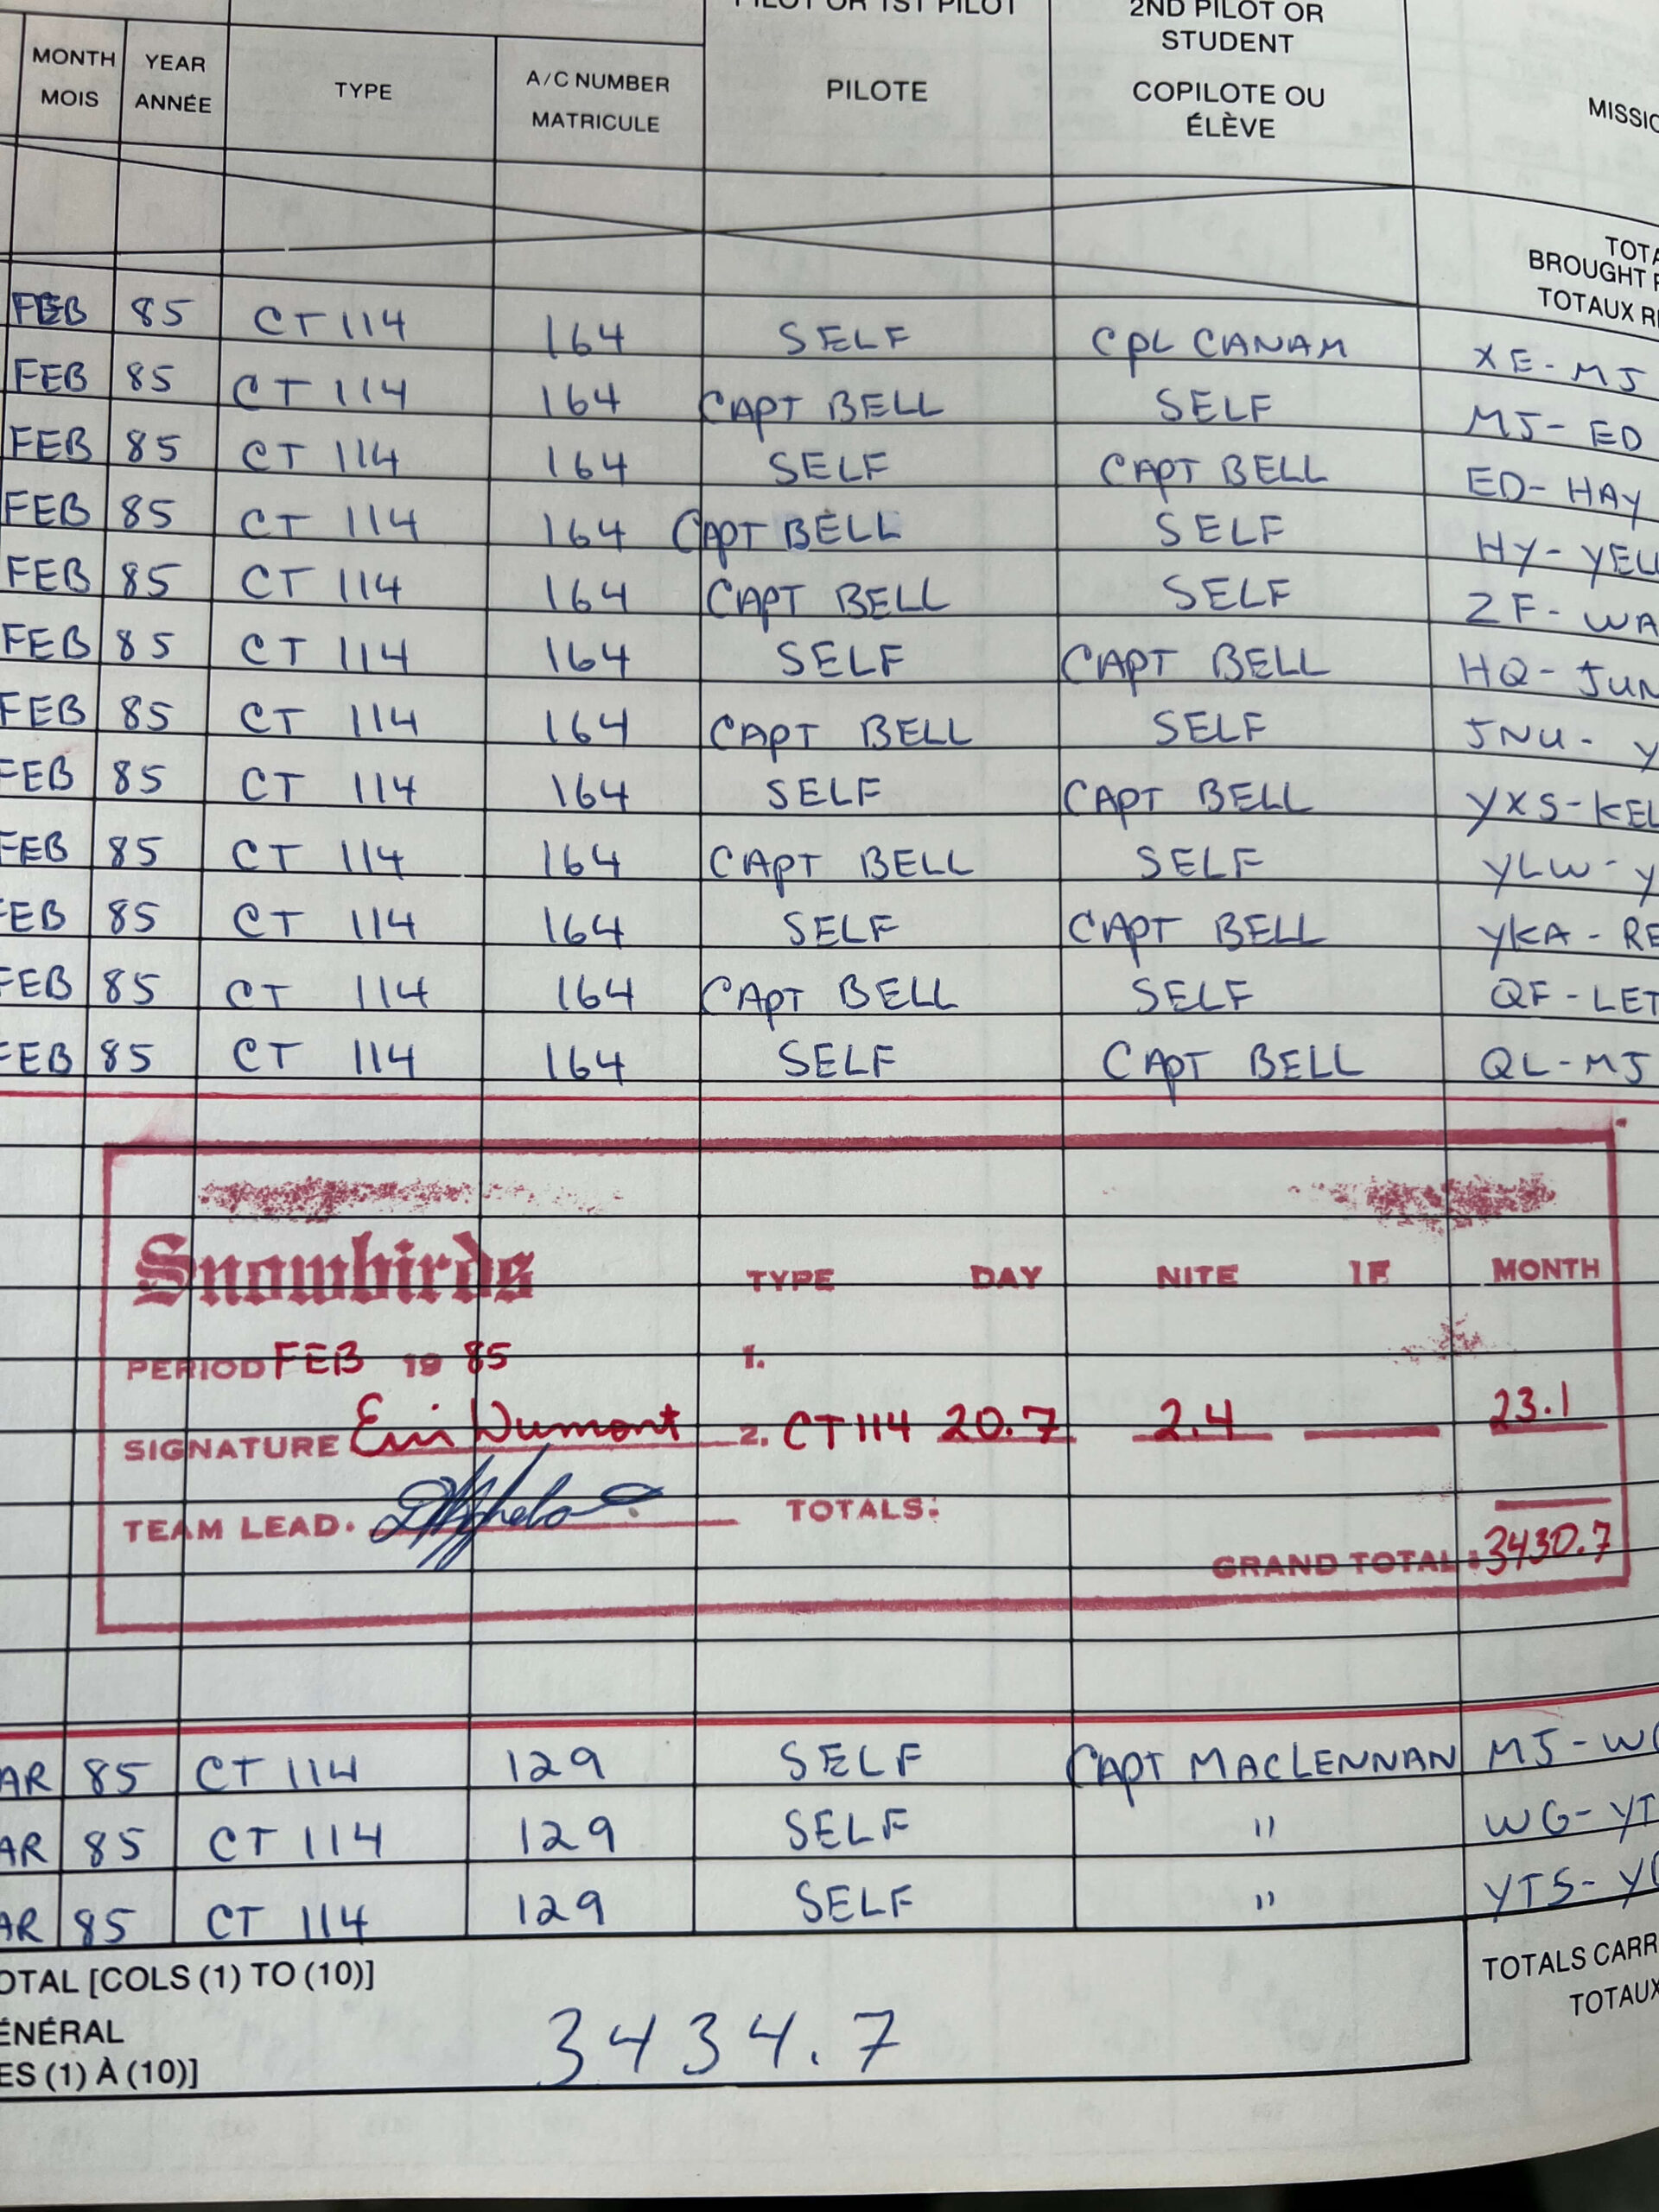 PILOT OR 1ST PILOT 2ND PILOT OR
STUDENT
MONTH YEAR TYPE A/C NUMBER PILOTE COPILOTE OU
MOIS ANNÉE MATRICULE ÉLÈVE
BROUGHT
TOTAUX
FEB 85 CT 114 164 SELF CPL CANAM XE-MJ
FEB 85 CT 114 164 CAPT BELL SELF MJ-ED
FEB 85 CT 114 164 SELF CAPT BELL ED-HAY
FEB 85 CT 114 164 CAPT BELL SELF HY-YEL
FEB 85 CT 114 164 CAPT BELL SELF ZF-WA
FEB 85 CT 114 164 SELF CAPT BELL HQ-JUN
FEB 85 CT 114 164 CAPT BELL SELF JNU-Y
FEB 85 CT 114 164 SELF CAPT BELL YXS-KEL
FEB 85 CT 114 164 CAPT BELL SELF YLW-Y
FEB 85 CT 114 164 SELF CAPT BELL YKA-RE
FEB 85 CT 114 164 CAPT BELL SELF QF-LET
FEB 85 CT 114 164 SELF CAPT BELL QL-MJ
Snowbirds TYPE DAY NITE IF MONTH
PERIOD FEB 19 85 1.
SIGNATURE Eric Dumont 2. CT114 20.7 2.4 23.1
TEAM LEAD. TOTALS:
GRAND TOTAL: 3430.7
AR 85 CT 114 129 SELF CAPT MACLENNAN MJ-W
AR 85 CT 114 129 SELF " WG-YT
AR 85 CT 114 129 SELF " YTS-Y
OTAL [COLS (1) TO (10)] TOTALS CARR
ÉNÉRAL 3434.7 TOTAUX
ES (1) À (10)]